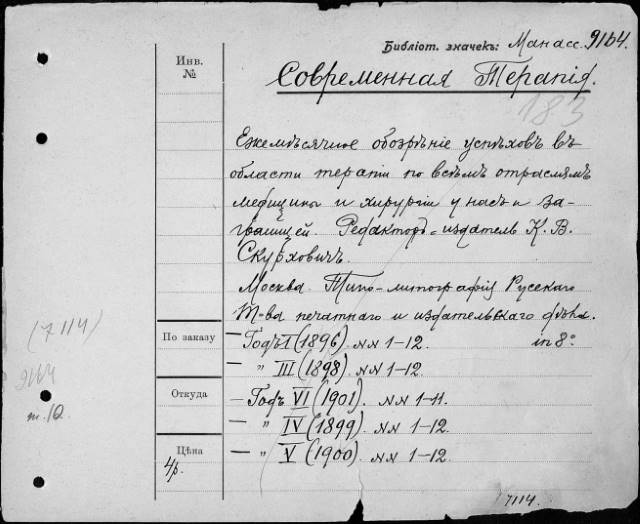 Библіот. значекъ: Манасс. 9164.
Инв.
№
Современная Терапія.
183
Ежемѣсячное обозрѣніе успѣховъ въ
области терапіи по всѣмъ отраслямъ
медицины и хирургіи у насъ и за-
границей. Редакторъ-издатель К. В.
Скурховичъ.
Москва. Типо-литографія Русскаго
Т-ва печатнаго и издательскаго дѣла.
(7114)
По заказу
— Годъ I (1896). №№ 1-12. in 8°
— „ III (1898). №№ 1-12.
9164
Откуда
— Годъ VI (1901). №№ 1-11.
т. 10.
— „ IV (1899). №№ 1-12.
Цѣна
— „ V (1900). №№ 1-12.
4р.
7114.